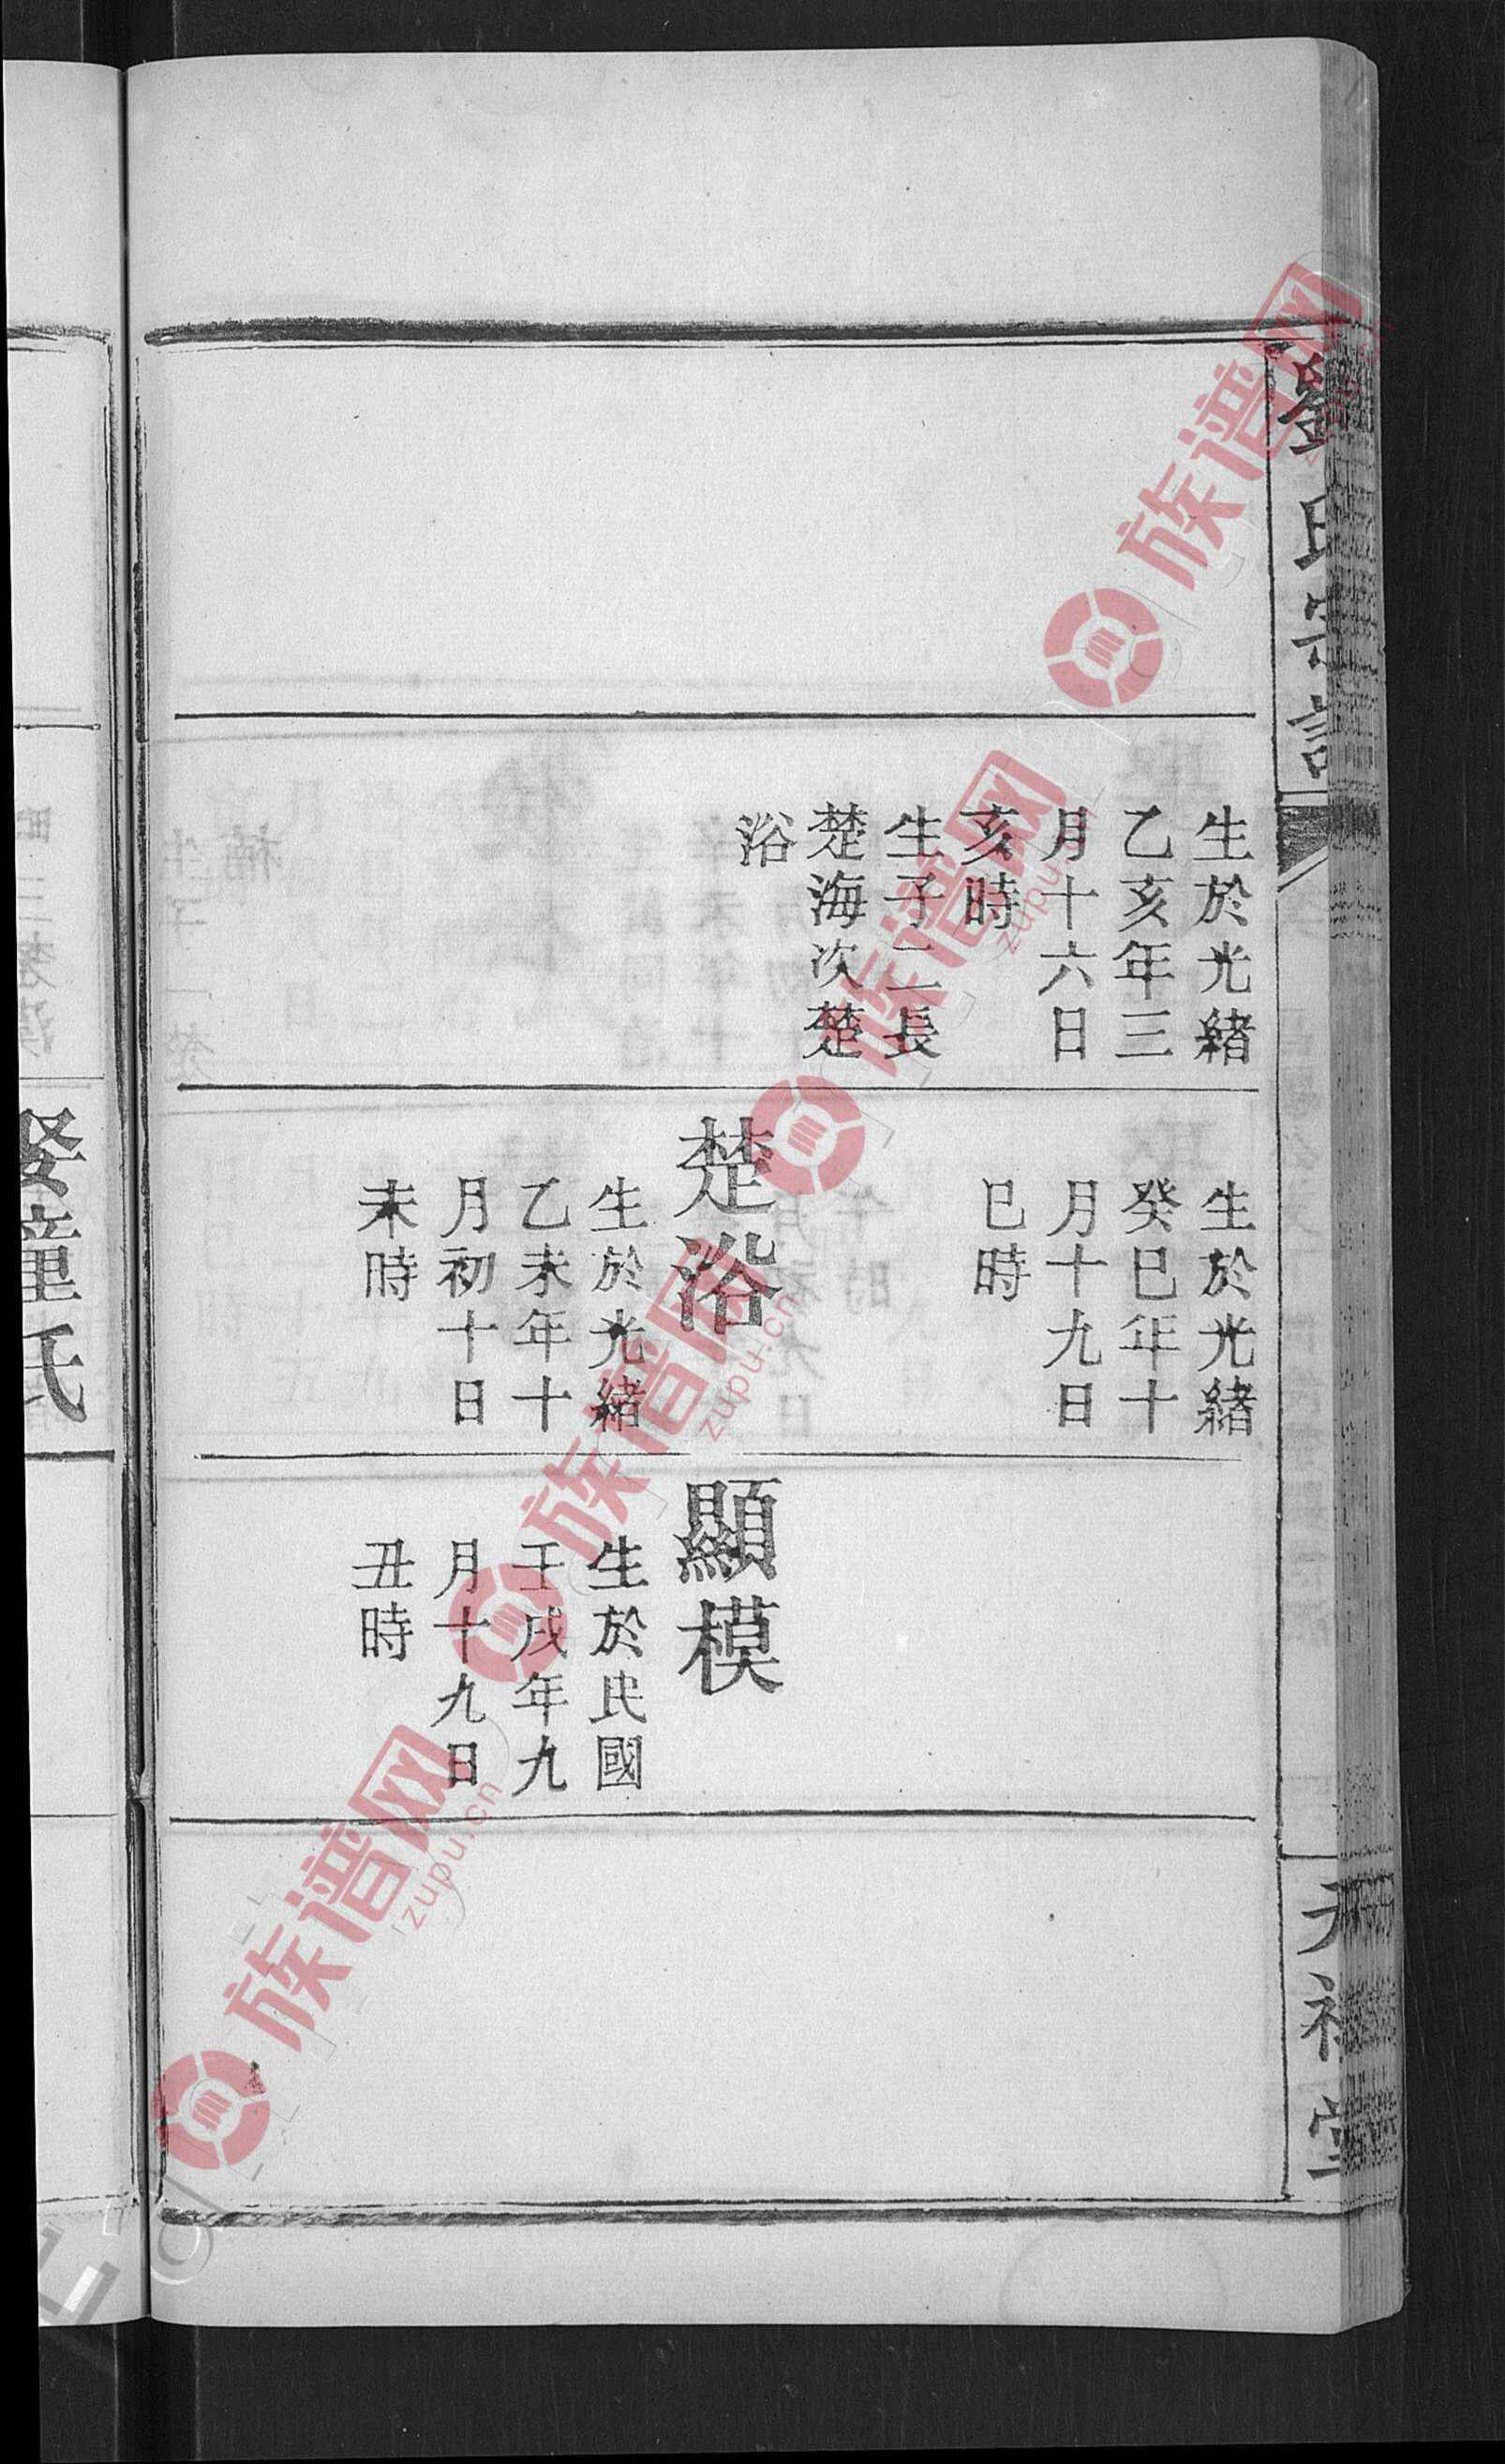 劉氏宗譜
生於光緒
乙亥年三
月十六日
亥時
生子二長
楚海次楚
浴
生於光緒
癸巳年十
月十九日
巳時
楚浴
生於光緒
乙未年十
月初十日
未時
顯模
生於民國
壬戌年九
月十九日
丑時
堂
娶童氏
族谱网
zupu.cn
族谱网
zupu.cn
族谱网
zupu.cn
族谱网